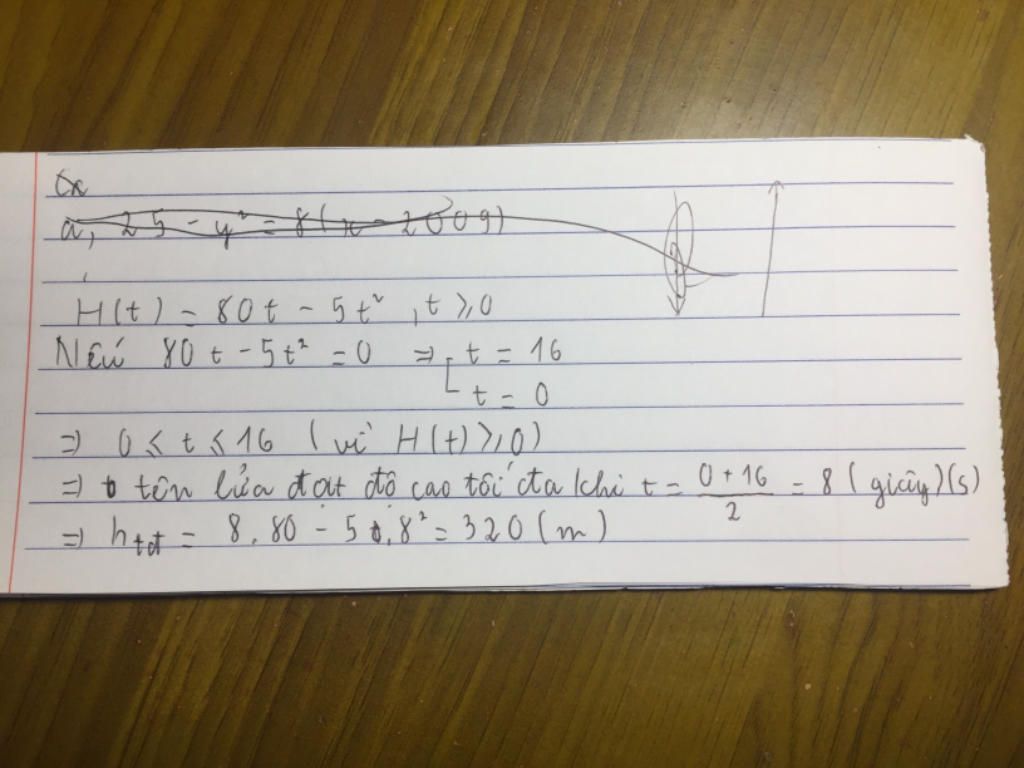 a, 25 - y² = 8(x - 2009)
H(t) = 80t - 5t² , t ⩾ 0
Nếu 80t - 5t² = 0 ⇒ [ t = 16
t = 0
⇒ 0 ⩽ t ⩽ 16 ( vì H(t) ⩾ 0)
⇒ tên lửa đạt độ cao tối đa khi t = (0 + 16)/2 = 8 ( giây)(s)
⇒ h_tđ = 8.80 - 5.8² = 320 (m)